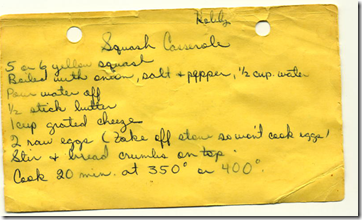 Squash Casserole
5 or 6 yellow squash
Boiled with onion, salt + pepper, 1/2 cup water
Pour water off
1/2 stick butter
1 cup grated cheeze
2 raw eggs (Take off stove so won't cook eggs)
Stir + bread crumbs on top.
Cook 20 min. at 350° or 400°.